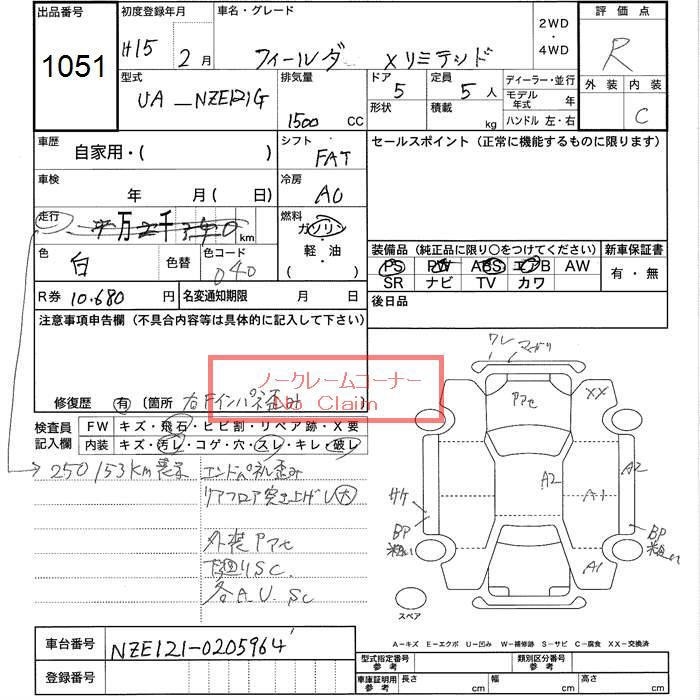 出品番号
1051
初度登録年月
H15 2月
車名・グレード
フィールダ Xリミテッド
2WD
・
4WD
評価点
R
外装 内装
C
型式
UA-NZE121G
排気量
1500 CC
ドア
5
形状
定員
5人
積載
kg
ディーラー・並行
モデル年式 年
ハンドル 左・右
車歴
自家用・( )
シフト
FAT
セールスポイント (正常に機能するものに限ります)
車検
年 月( 日)
冷房
AC
走行
万2千340 km
燃料
ガソリン
・
軽・油
・
( )
色
白
色替
色コード
040
装備品 (純正品に限り〇をつけてください)
PS PW ABS エアB AW
SR ナビ TV カワ
新車保証書
有・無
R券 10,680円
名変通知期限 月 日
後日品
注意事項申告欄 (不具合内容等は具体的に記入して下さい)
ノークレームコーナー
No Claim
修復歴 有 〔箇所 右Fインパネ歪み 〕
検査員記入欄
FW キズ・飛石・ヒビ割・リペア跡・X要
内装 キズ・汚レ・コゲ・穴・スレ・キレ・破レ
250153km表示
エンドパネル歪み
リアフロア突き上げし大
外装アアセ
下廻りSC.
各A.U.SC
ワレ マガリ
XX
アアセ
A2
A2
A1
A1
サケ
BP
粗い
BP
粗い
スペア
A-キズ E-エクボ U-凹み W-補修跡 S-サビ C-腐食 XX-交換済
車台番号
NZE121-0205964
登録番号
型式指定番号
参考
類別区分番号
参考
車庫証明用
参考
長さ cm
幅 cm
高さ cm